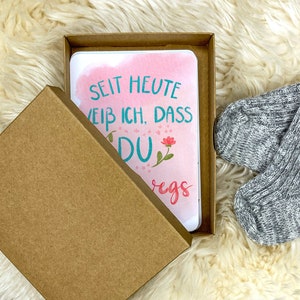 SEIT HEUTE
WEIß ICH, DASS
DU
rgs